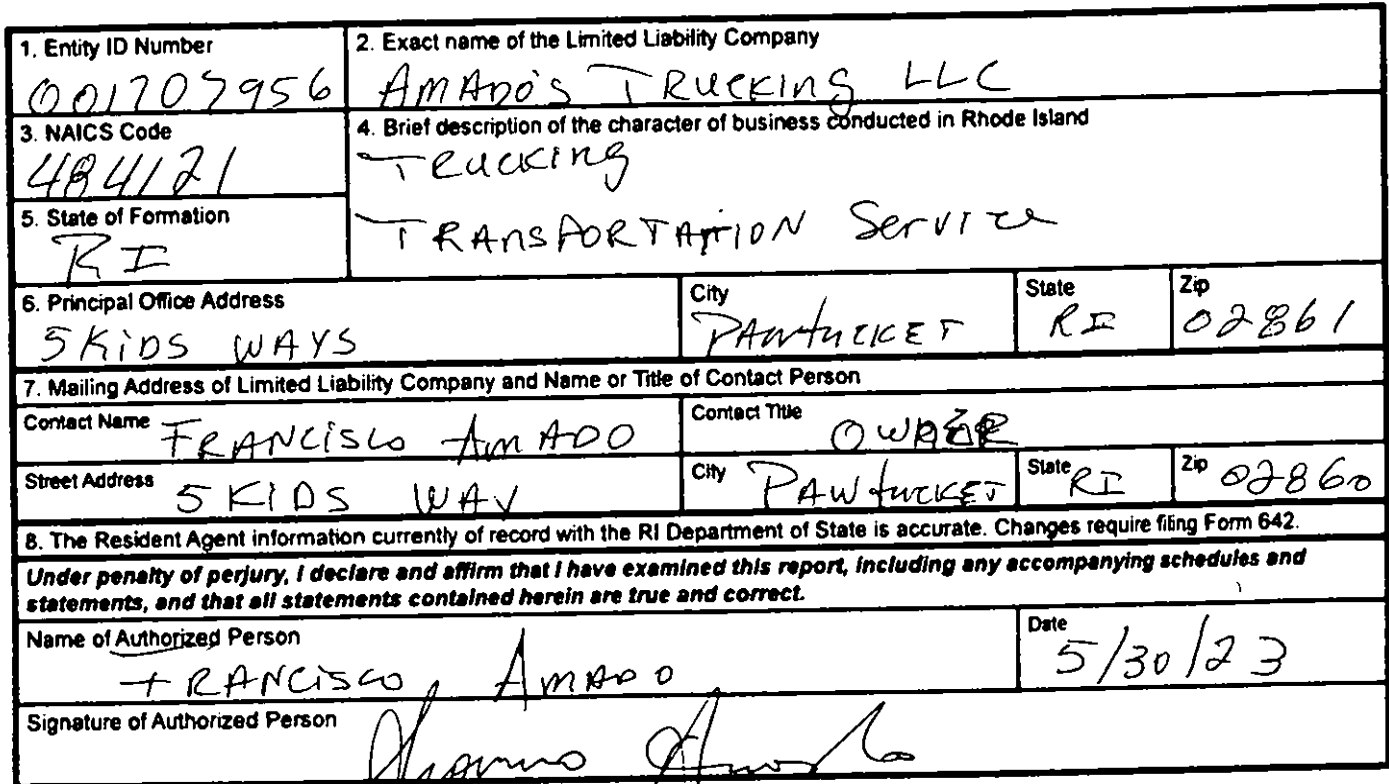 1. Entity ID Number
001707956
2. Exact name of the Limited Liability Company
AMADO'S TRUCKING LLC
3. NAICS Code
484121
4. Brief description of the character of business conducted in Rhode Island
TRUCKING
TRANSPORTATION Service
5. State of Formation
RI
6. Principal Office Address
5 KIDS WAYS
City
PAWTUCKET
State
RI
Zip
02861
7. Mailing Address of Limited Liability Company and Name or Title of Contact Person
Contact Name FRANCISCO AMADO
Contact Title OWNER
Street Address 5 KIDS WAY
City PAWTUCKET
State RI
Zip 02860
8. The Resident Agent information currently of record with the RI Department of State is accurate. Changes require filing Form 642.
Under penalty of perjury, I declare and affirm that I have examined this report, including any accompanying schedules and
statements, and that all statements contained herein are true and correct.
Name of Authorized Person
FRANCISCO, AMADO
Date
5/30/23
Signature of Authorized Person